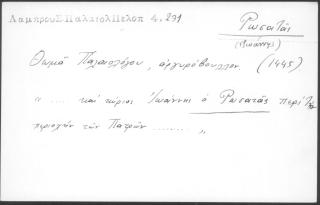 ΛαμπρουΣΠαλαιολΠελοπ 4.231
Ρωσατᾶς
(Ἰωάννης)
Θωμᾶ Παλαιολόγου, ἀργυρόβουλλον. (1445)
"..... καί κύριος Ἰωάννης ὁ Ρωσατᾶς περί τήν
περιοχήν τῶν Πατρῶν ........ "